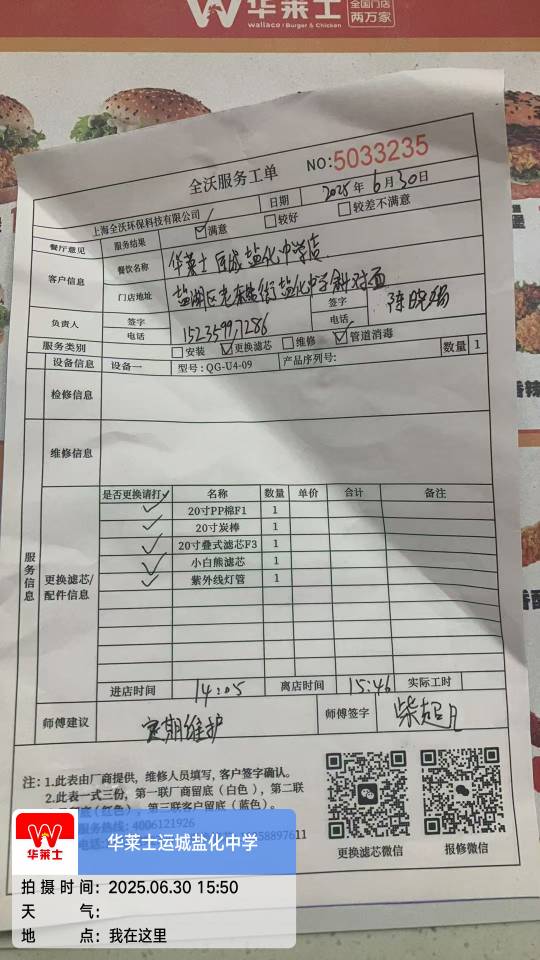 华莱士
全国门店
两万家
wallace / Burger & Chicken
全沃服务工单
NO:5033235
上海全沃环保科技有限公司
日期
2025年6月30日
餐厅意见
服务结果
满意
较好
较差不满意
客户信息
餐饮名称
华莱士 运城盐化中学店
门店地址
盐湖区 街盐化中学斜对面
负责人
签字
签字
电话
15235997286
电话
服务类别
安装
更换滤芯
维修
管道消毒
设备信息
设备一
型号:QG-U4-09
产品序列号:
数量
1
检修信息
维修信息
服务信息
更换滤芯/配件信息
是否更换请打✓ 名称 数量 单价 合计 备注
✓ 20寸PP棉F1 1
✓ 20寸炭棒 1
✓ 20寸叠式滤芯F3 1
✓ 小白熊滤芯 1
✓ 紫外线灯管 1
进店时间
14:05
离店时间
15:46
实际工时
师傅建议
定期维护
师傅签字
注:1.此表由厂商提供,维修人员填写,客户签字确认。
2.此表一式三份,第一联厂商留底(白色),第二联
留底(红色),第三联客户留底(蓝色)。
服务热线:4006121926
58897611
更换滤芯微信
报修微信
华莱士
华莱士运城盐化中学
拍摄时间:2025.06.30 15:50
天气:
地点:我在这里